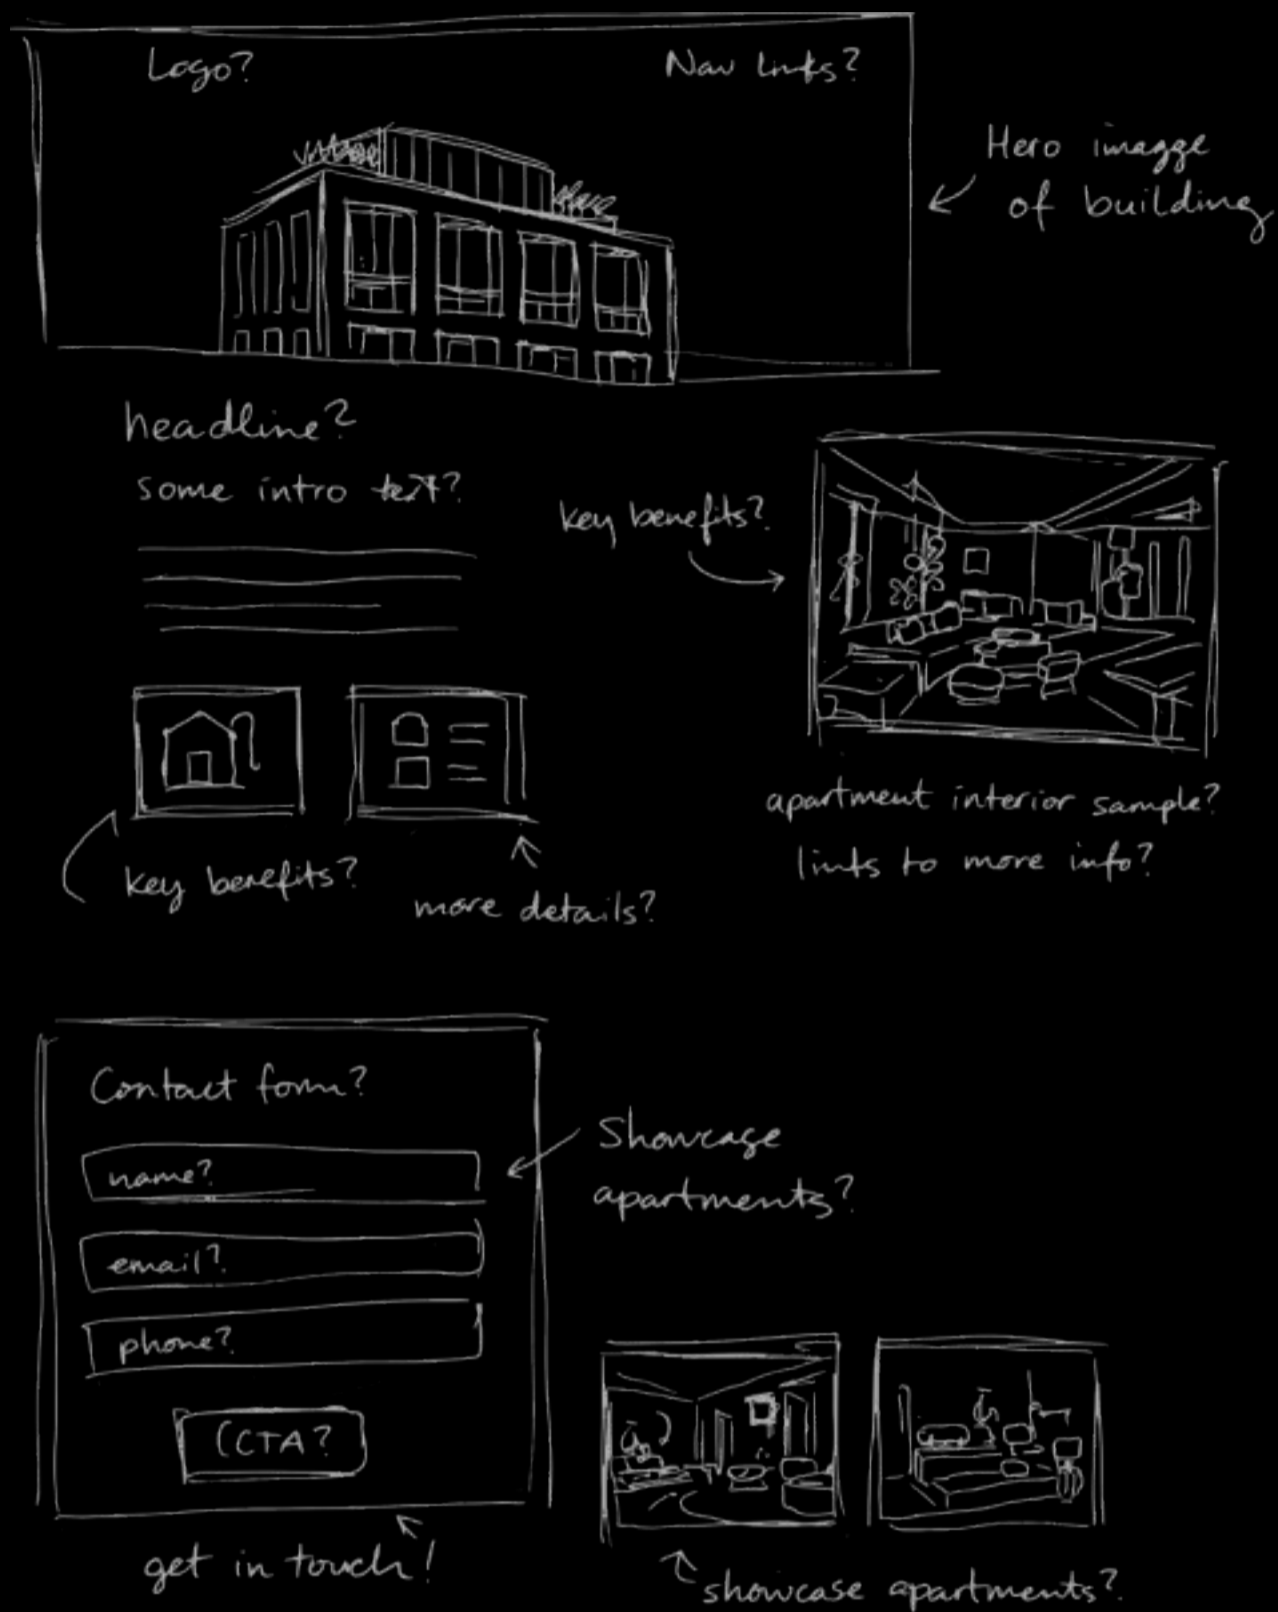 Logo?
Nav links?
Hero imagge
of building
headline?
some intro text?
key benefits?
apartment interior sample?
links to more info?
key benefits?
more details?
Contact form?
name?
email?
phone?
CTA?
get in touch!
Showcase
apartments?
showcase apartments?